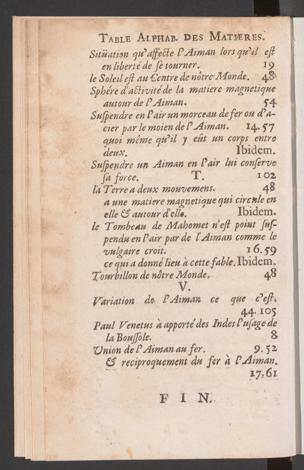 TABLE ALPHAB. DES MATIERES.
Sitüation qu'affecte l'Aiman lors qu'il est
en liberté de se tourner. 19
le Soleil est au Centre de nôtre Monde. 48
Sphére d'activité de la matiere magnetique
autour de l'Aiman. 54
Suspendre en l'air un morceau de fer ou d'a-
cier par le moien de l'Aiman. 14.57
quoi même qu'il y eût un corps entre
deux. Ibidem.
Suspendre un Aiman en l'air lui conserve
sa force. T. 102
la Terre a deux mouvemens. 48
a une matiere magnetique qui circule en
elle & autour d'elle. Ibidem.
le Tombeau de Mahomet n'est point sus-
pendu en l'air par de l'Aiman comme le
vulgaire croit. 16.59
ce qui a donné lieu à cette fable. Ibidem.
Tourbillon de nôtre Monde. 48
V.
Variation de l'Aiman ce que c'est.
44.105
Paul Venetus à apporté des Indes l'usage de
la Boussole. 8
Union de l'Aiman au fer. 9.52
& reciproquement du fer à l'Aiman.
17.61
FIN.